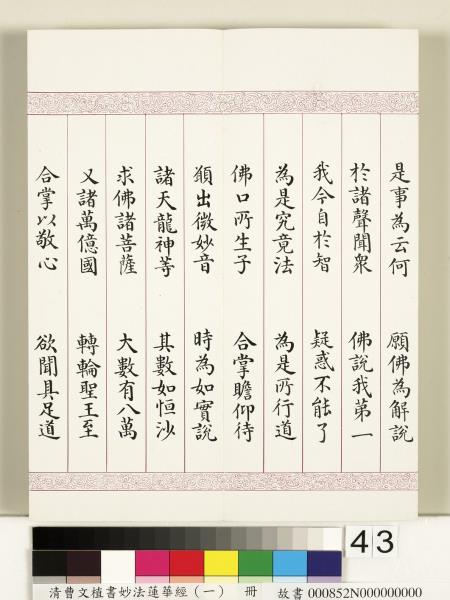 是事為云何　願佛為解說
於諸聲聞眾　佛說我第一
我今自於智　疑惑不能了
為是究竟法　為是所行道
佛口所生子　合掌瞻仰待
願出微妙音　時為如實說
諸天龍神等　其數如恒沙
求佛諸菩薩　大數有八萬
又諸萬億國　轉輪聖王至
合掌以敬心　欲聞具足道
43
清曹文植書妙法蓮華經（一）　冊　故書 000852N000000000